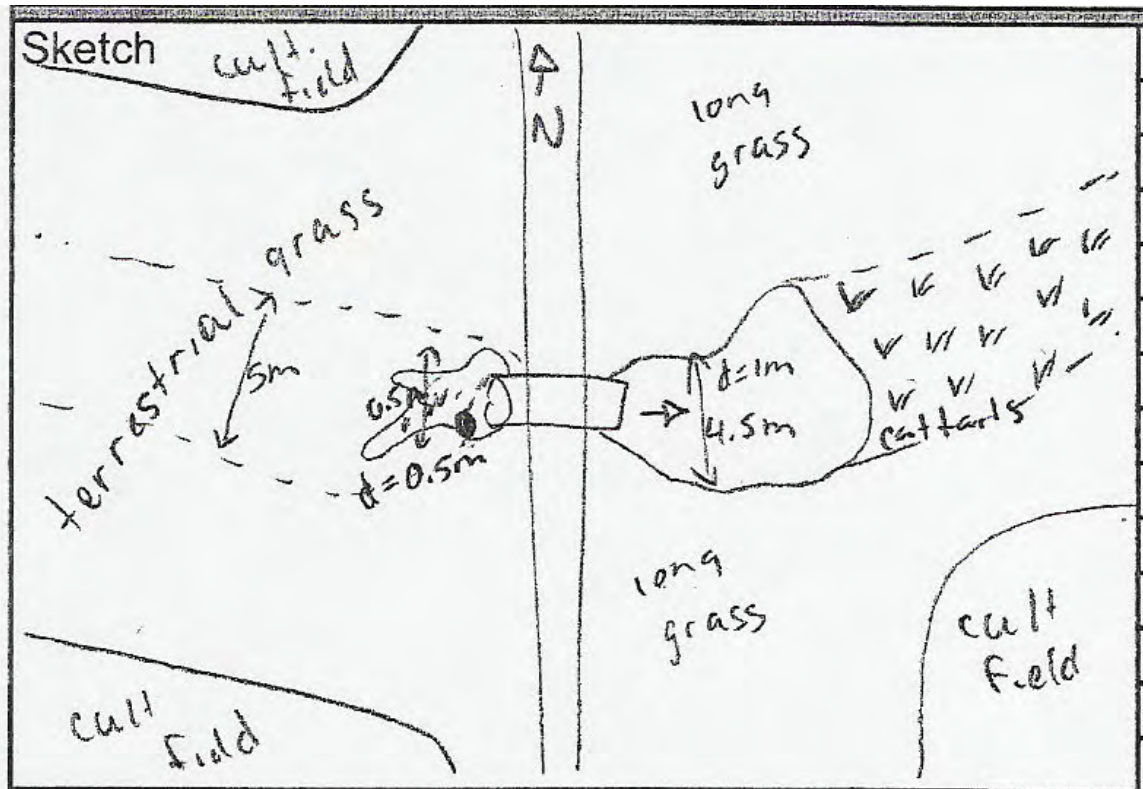 Sketch
cult.
field
N
long
grass
terrestrial grass
5m
0.5m
d=0.5m
d=1m
4.5m
cattails
long
grass
cult
field
cult
field